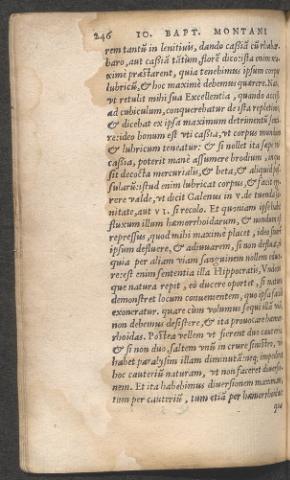 246 IO. BAPT. MONTANI
rem tantū in lenitiuis, dando cassiā cū rhabar
baro, aut cassiā tātum, florē dico: ista enim ma
ximè præstarent, quia tenebimus ipsum corpus
lubricū, & hoc maximè debemus quærere. Nam
vt retulit mihi sua Excellentia, quando accessi
ad cubiculum, conquerebatur de ista repletione,
& dicebat ex ipsa maximum detrimentū senti
re: ideo bonum est vti cassia, vt corpus mundum
& lubricum teneatur: & si nollet ita sæpe vti
cassia, poterit manè assumere brodium, in quo
sit decocta mercurialis, & beta, & aliquid
istud enim lubricat corpus, & facit cur
rere valde, vt dicit Galenus in v. de tuenda sa
nitate, aut VI. si recolo. Et quoniam ipse habuit
fluxum illum hæmorrhoidarum, & nondum est
repressus, quod mihi maximè placet, ideo sinere
ipsum defluere, & adiuuarem, si non deflueret,
quia per aliam viam sanguinem nollem educe
re: est enim sententia illa Hippocratis, Vnde
que natura repit, eò ducere oportet, si natura
demonstret locum conuenientem, quo ipsa facilè
exoneratur. quare cùm volumus sequi illā viā,
non debemus desistere, & ita prouocare hæmor
rhoidas. Postea vellem vt fierent duo cauteria,
& si non duo, saltem vnū in crure sinistro,
habet paralysim illam diminutā: neq; impediret
hoc cauteriū naturam, vt non faceret diuersio
nem. Et ita habebimus diuersionem maximam,
tum per cauteriū, tum etiā per hæmorrhoidas